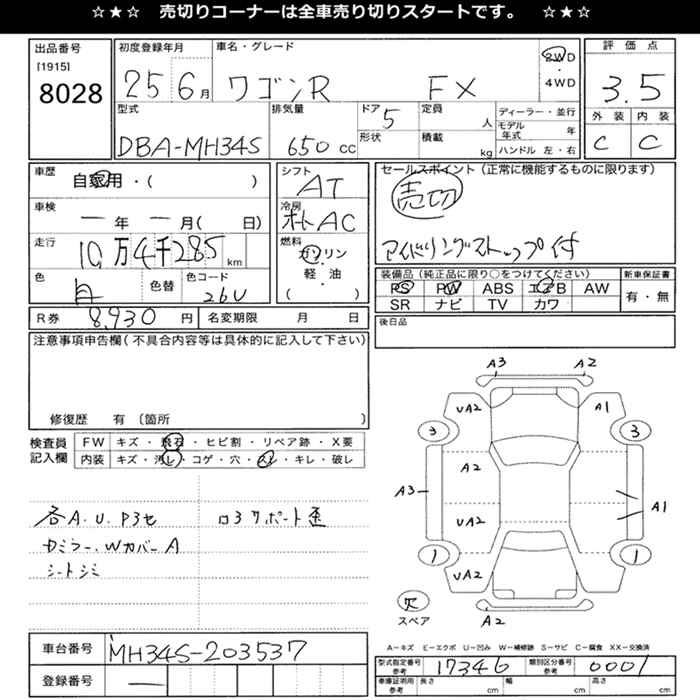 ☆★☆ 売切りコーナーは全車売り切りスタートです。 ☆★☆
出品番号
[1915]
8028
初度登録年月
25 6月
車名・グレード
ワゴンR FX
2WD
・
4WD
評価点
3.5
外装 内装
C C
型式
DBA-MH34S
排気量
650 cc
ドア
5
形状
定員
人
積載
kg
ディーラー・並行
モデル年式 年
ハンドル 左・右
車歴
自家用・( )
車検
一年一月( 日)
走行
10万4千285km
色
白
色替
色コード
26U
シフト
AT
冷房
オートAC
燃料
ガソリン
軽・油
( )
セールスポイント(正常に機能するものに限ります)
売切
アイドリングストップ付
装備品(純正品に限り○をつけてください)
PS PW ABS エアB AW
SR ナビ TV カワ
新車保証書
有・無
R券 8,930 円
名変期限 月 日
後日品
注意事項申告欄(不具合内容等は具体的に記入して下さい)
修復歴 有 〔箇所 〕
検査員
記入欄
FW キズ・飛石・ヒビ割・リペア跡・X要
内装 キズ・汚レ・コゲ・穴・スレ・キレ・破レ
各A.U.P3セ
ロ3サポート歪
カミラー.WカバーA
シートシミ
A3 A2
UA2 A1
3 3
A2
A3 A1
UA2
1 1
UA2
A2
欠
スペア
A-キズ E-エクボ U-凹み W-補修跡 S-サビ C-腐食 XX-交換済
車台番号 MH34S-203537
登録番号 —
型式指定番号
参考
17346
類別区分番号
参考
0001
車庫証明用
参考
長さ cm
幅 cm
高さ cm